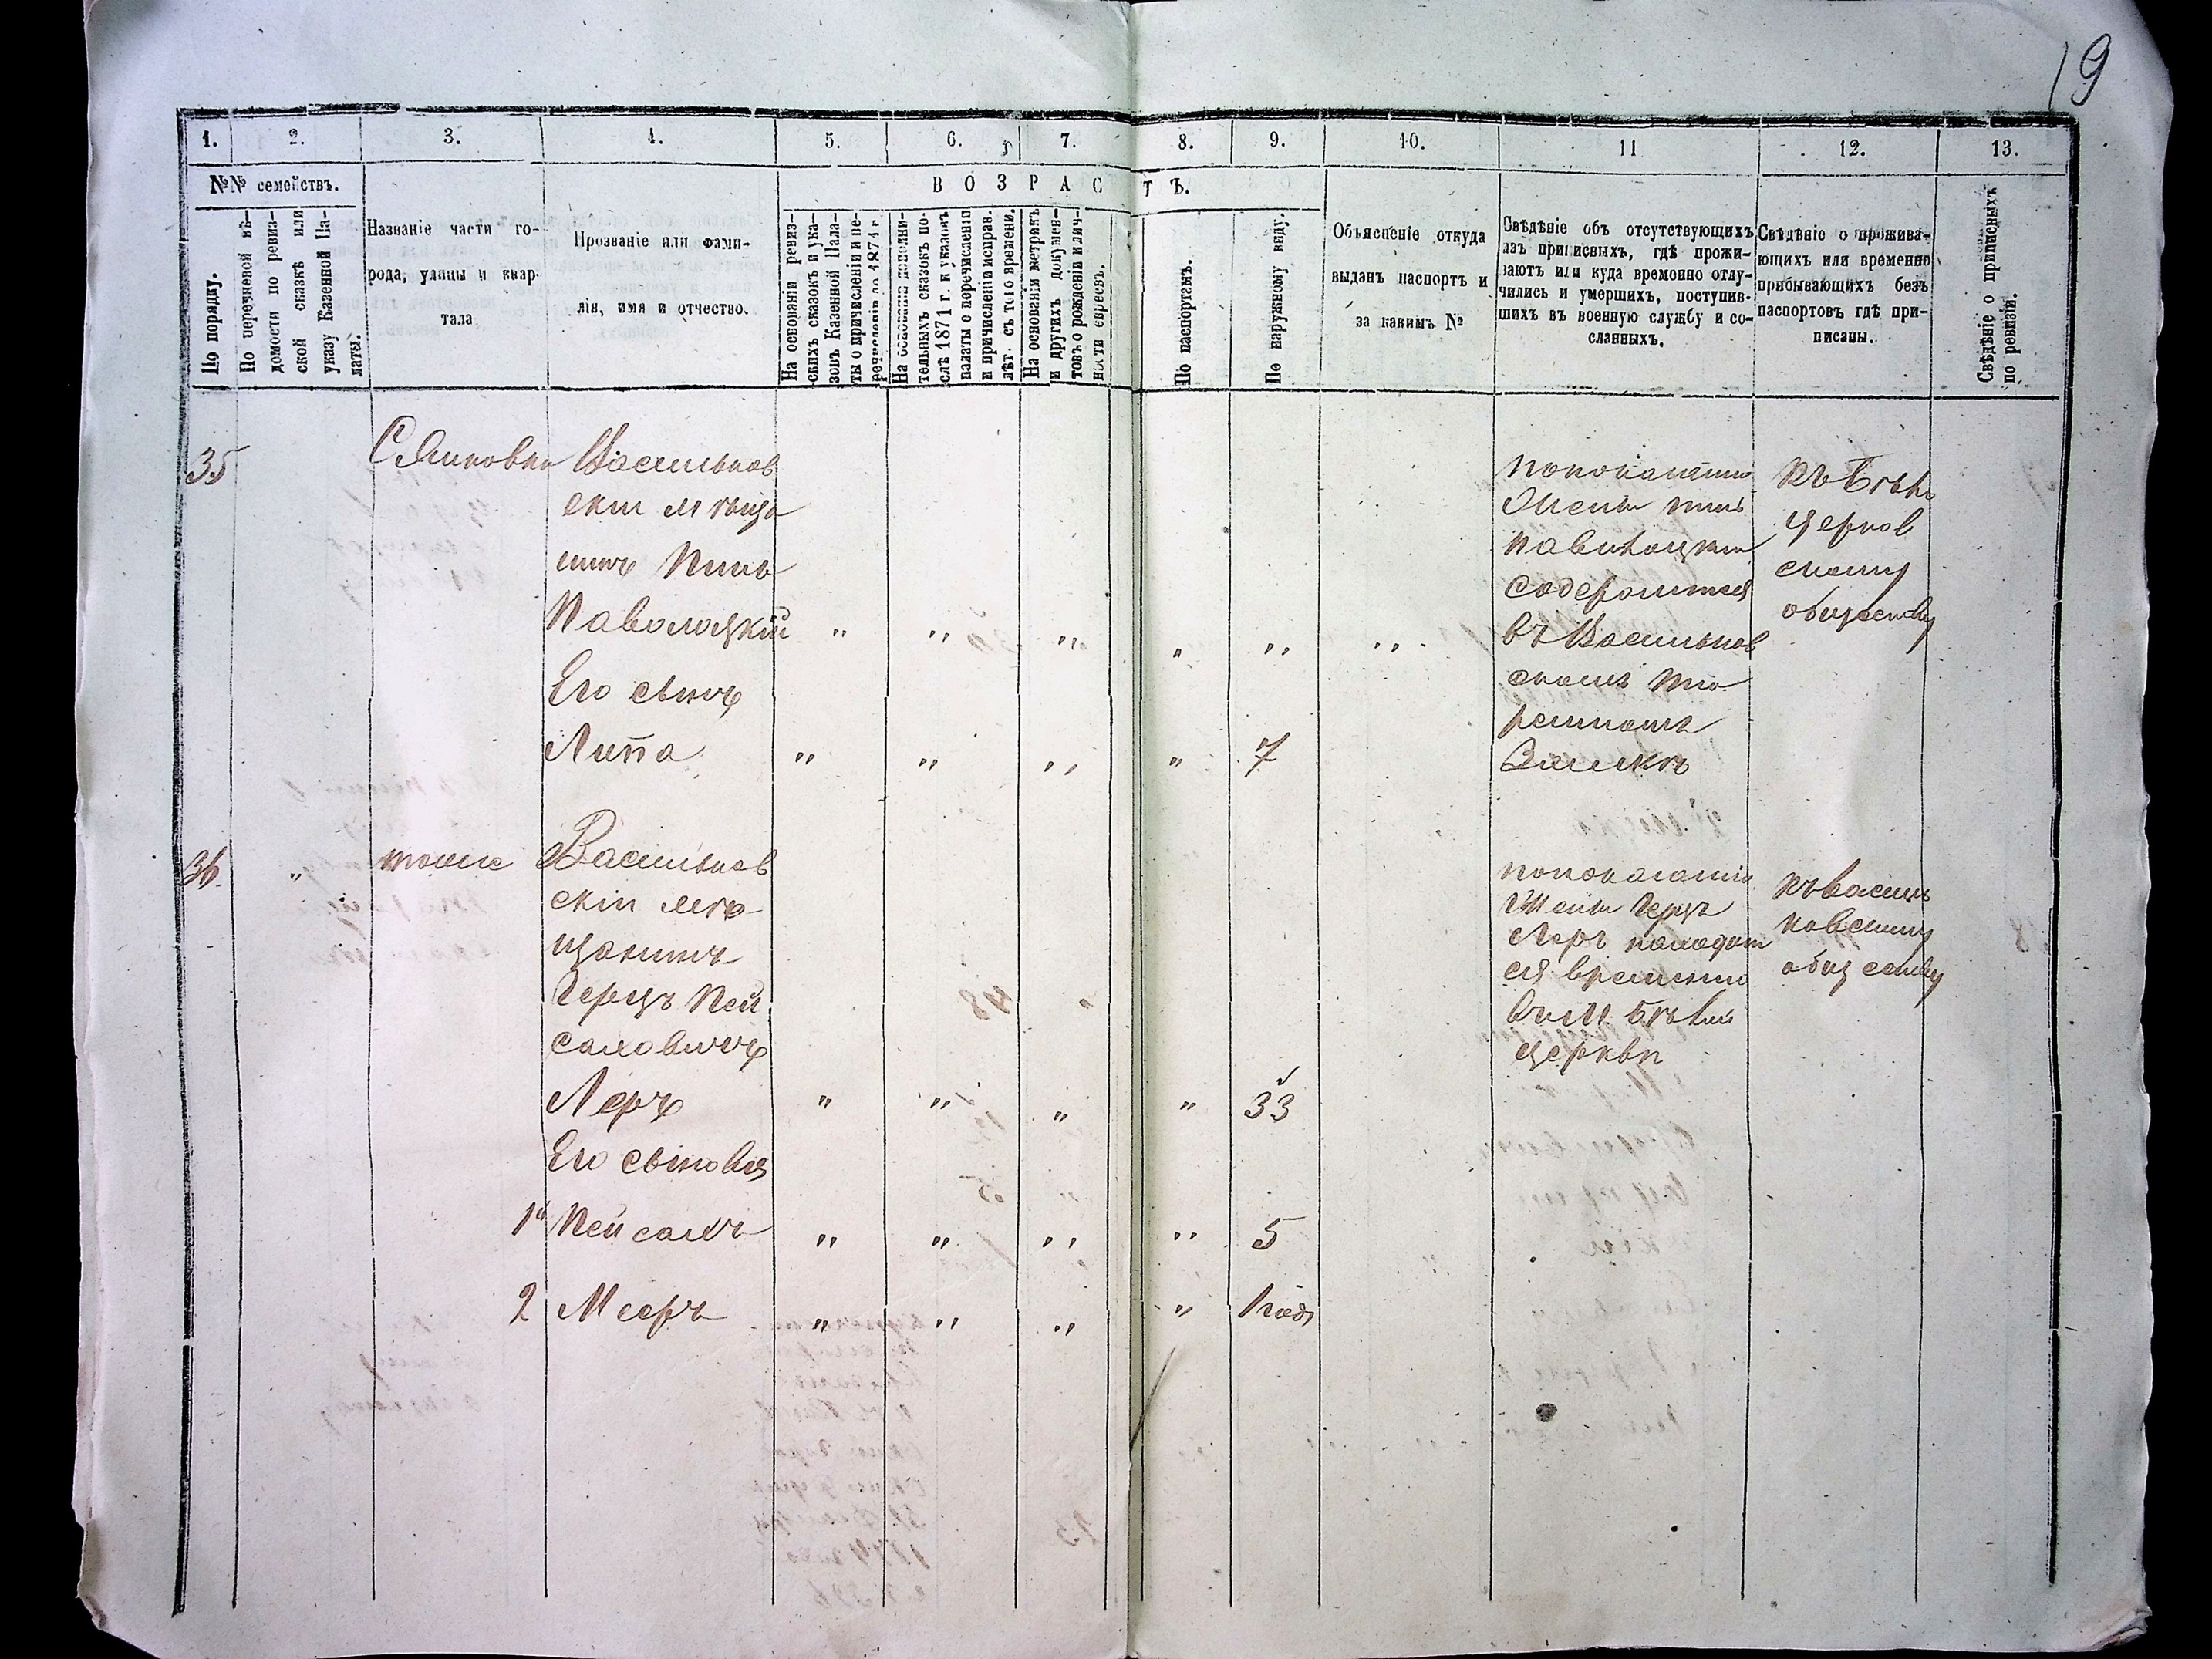 19
1. 2. 3. 4. 5. 6. 7. 8. 9. 10. 11 12. 13.
№№ семействъ.
ВОЗРАСТЪ.
По порядку.
По перечневой вѣ-
домости по ревиз-
ской сказкѣ или
указу Казенной Па-
латы.
Названіе части го-
рода, улицы и квар-
тала
Прозваніе или фами-
лія, имя и отчество.
На основаніи ревиз-
скихъ сказокъ и ука-
зовъ Казенной Пала-
ты о причисленіи и пе-
речисленіи до 1871 г.
На основаніи дополни-
тельныхъ сказокъ по-
слѣ 1871 г. и указовъ
палаты о перечисленіи
и причисленіи исправ.
лѣт. съ того времени.
На основаніи метрикъ
и другихъ докумен-
товъ о рожденіи и лич-
ности евреевъ.
По паспортамъ.
По наружному виду.
Объясненіе откуда
выданъ паспортъ и
за какимъ №
Свѣдѣніе объ отсутствующихъ
изъ приписныхъ, гдѣ прожи-
ваютъ или куда временно отлу-
чились и умершихъ, поступив-
шихъ въ военную службу и со-
сланныхъ.
Свѣдѣніе о прожива-
ющихъ или временно
прибывающихъ безъ
паспортовъ гдѣ при-
писаны.
Свѣдѣніе о приписныхъ
по ревизіи.
35
С. Янковка
Васильков
скій мѣща
нинъ Пинь
Паволоцкій " " " " " "
Его сынъ
Липа " " " " 7
по показанію
жены
Паволоцкій
содержится
въ Васильков
скомъ тю
ремномъ
Замкѣ
къ Бѣло
церков
скому
обществу
36. "
тоже
Васильков
скій мѣ-
щанинъ
Герцъ Пей
саховичъ
Леръ " " " " 33
Его сыновья
1й Пейсахъ " " " " 5
2 Мееръ " " " " 1 годъ
по показанію
жены Герцъ
Леръ находит
ся временно
въ М. Бѣлой
церкви
къ Василь
ковскому
обществу